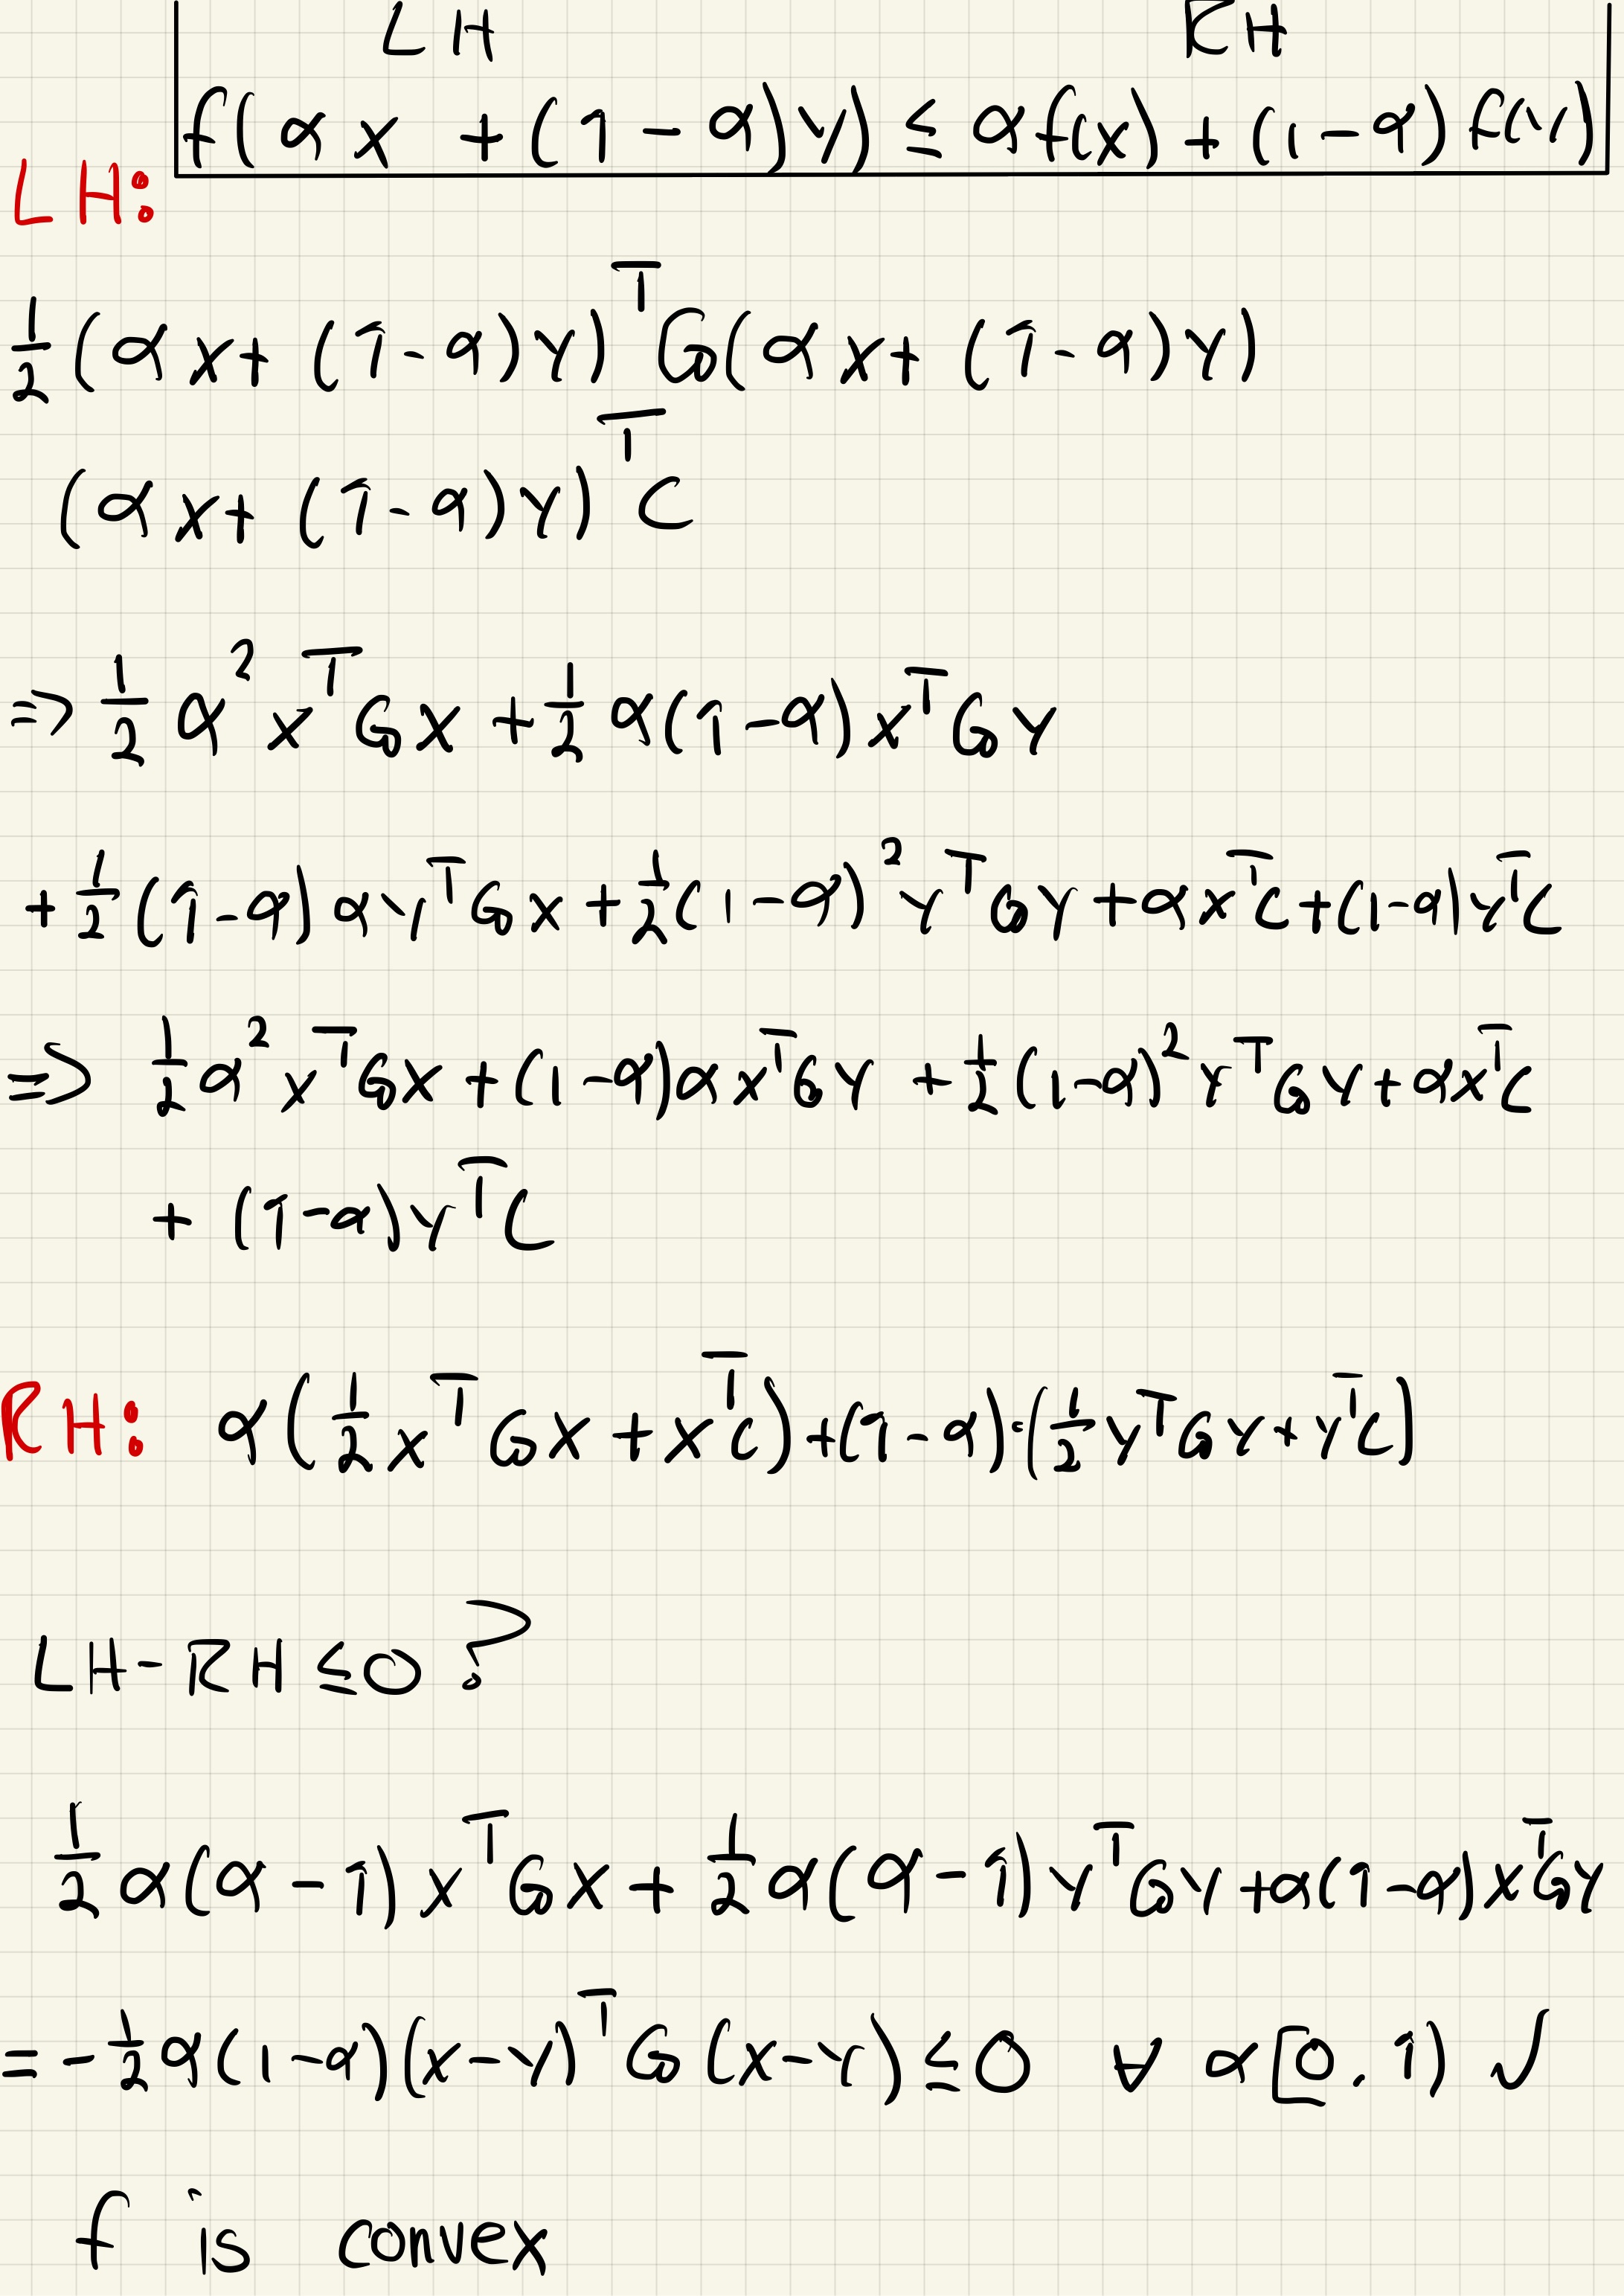 LH RH
f(αx + (1-α)y) ≤ αf(x) + (1-α)f(y)
LH:
1/2 (αx + (1-α)y)^T G(αx + (1-α)y)
(αx + (1-α)y)^T C
=> 1/2 α^2 x^T G x + 1/2 α(1-α) x^T G y
+ 1/2 (1-α) α y^T G x + 1/2 (1-α)^2 y^T G y + α x^T C + (1-α) y^T C
=> 1/2 α^2 x^T G x + (1-α) α x^T G y + 1/2 (1-α)^2 y^T G y + α x^T C
+ (1-α) y^T C
RH: α(1/2 x^T G x + x^T C) + (1-α)·(1/2 y^T G y + y^T C)
LH - RH ≤ 0 ?
1/2 α(α-1) x^T G x + 1/2 α(α-1) y^T G y + α(1-α) x^T G y
= - 1/2 α(1-α)(x-y)^T G (x-y) ≤ 0 ∀ α[0.1) ✓
f is convex